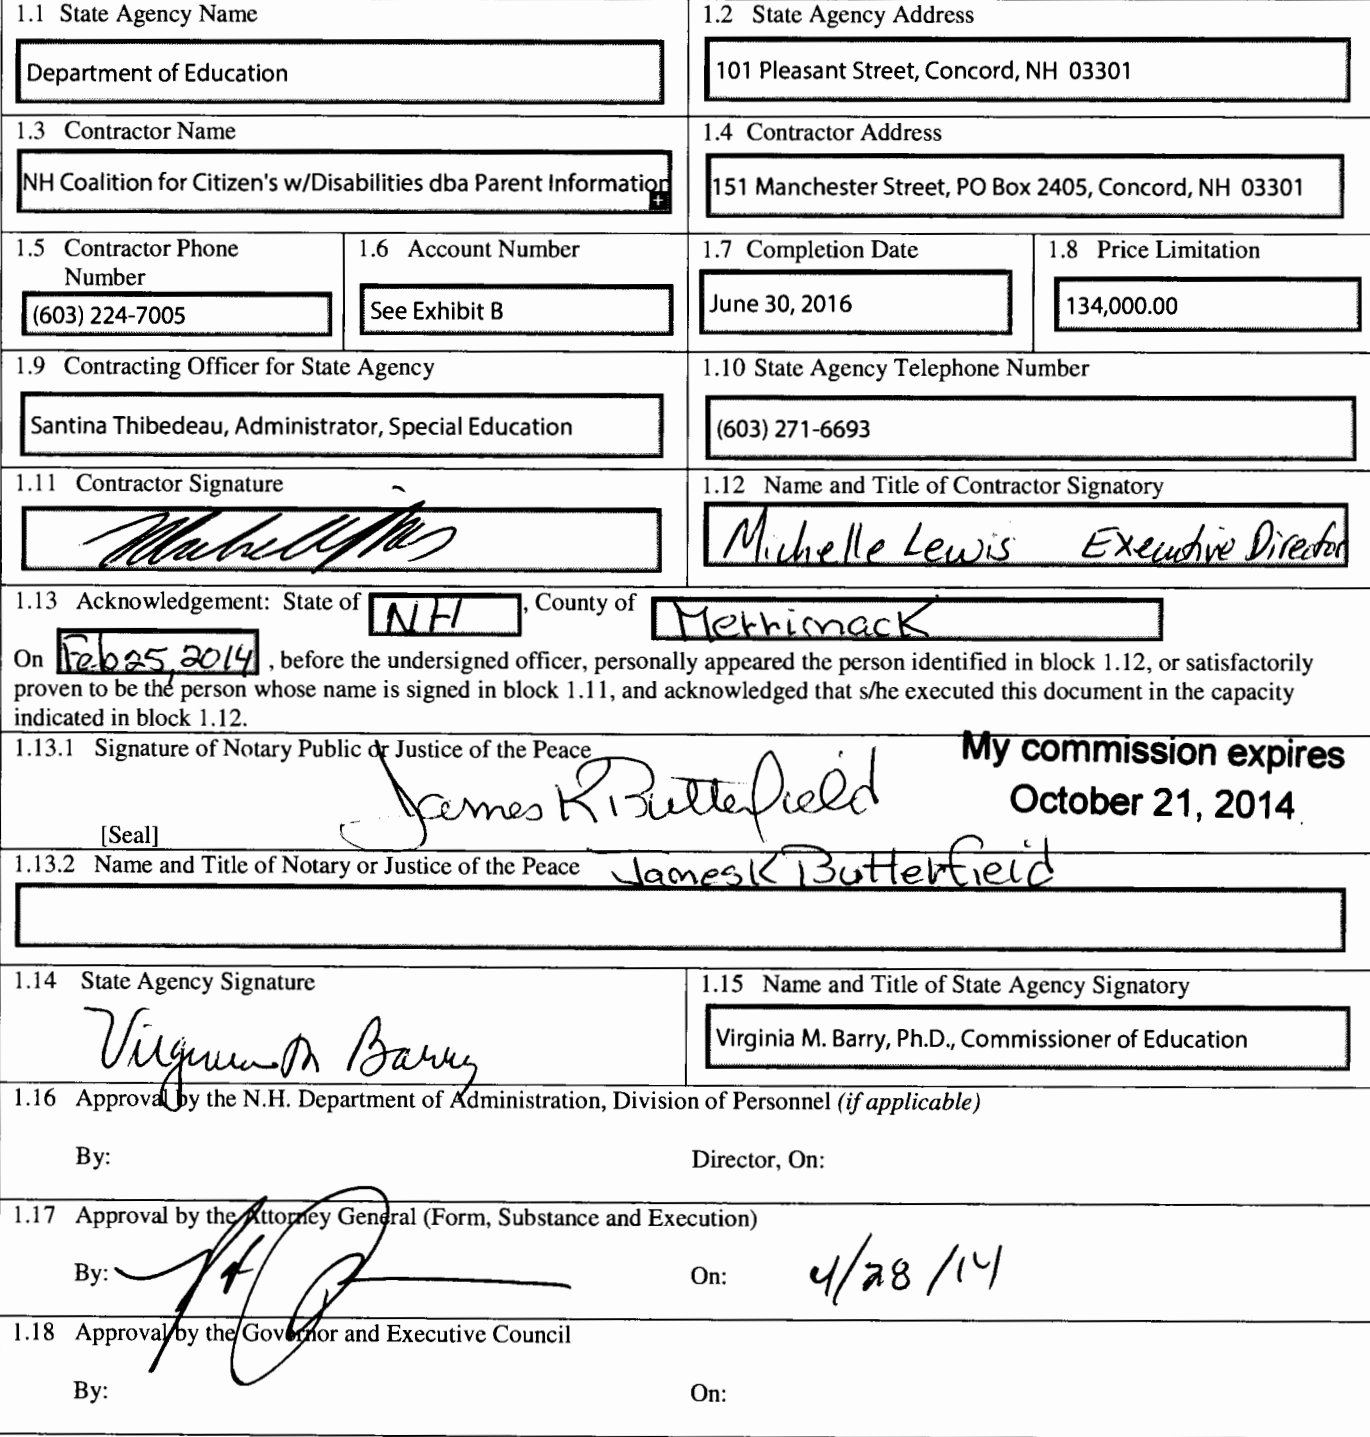 1.1 State Agency Name
Department of Education
1.2 State Agency Address
101 Pleasant Street, Concord, NH 03301
1.3 Contractor Name
NH Coalition for Citizen's w/Disabilities dba Parent Information
1.4 Contractor Address
151 Manchester Street, PO Box 2405, Concord, NH 03301
1.5 Contractor Phone
Number
(603) 224-7005
1.6 Account Number
See Exhibit B
1.7 Completion Date
June 30, 2016
1.8 Price Limitation
134,000.00
1.9 Contracting Officer for State Agency
Santina Thibedeau, Administrator, Special Education
1.10 State Agency Telephone Number
(603) 271-6693
1.11 Contractor Signature
1.12 Name and Title of Contractor Signatory
Michelle Lewis Executive Director
1.13 Acknowledgement: State of NH, County of Merrimack
On Feb 25, 2014, before the undersigned officer, personally appeared the person identified in block 1.12, or satisfactorily
proven to be the person whose name is signed in block 1.11, and acknowledged that s/he executed this document in the capacity
indicated in block 1.12.
1.13.1 Signature of Notary Public or Justice of the Peace
James K Butterfield
My commission expires
October 21, 2014
[Seal]
1.13.2 Name and Title of Notary or Justice of the Peace James K Butterfield
1.14 State Agency Signature
Virginia M Barry
1.15 Name and Title of State Agency Signatory
Virginia M. Barry, Ph.D., Commissioner of Education
1.16 Approval by the N.H. Department of Administration, Division of Personnel (if applicable)
By: Director, On:
1.17 Approval by the Attorney General (Form, Substance and Execution)
By: On: 4/28/14
1.18 Approval by the Governor and Executive Council
By: On: